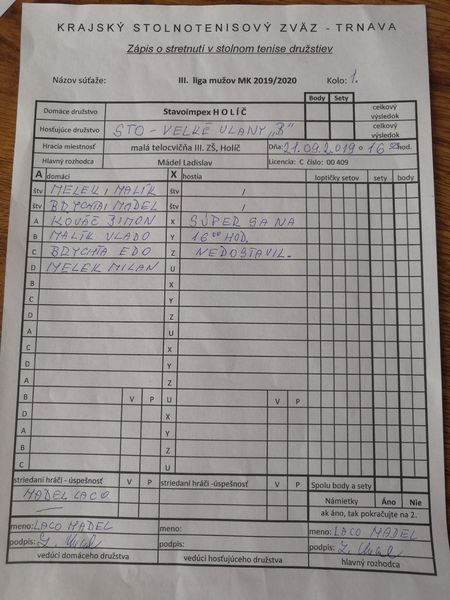 KRAJSKÝ STOLNOTENISOVÝ ZVÄZ - TRNAVA
Zápis o stretnutí v stolnom tenise družstiev
Názov súťaže: III. liga mužov MK 2019/2020 Kolo: 1.
Body Sety
Domáce družstvo Stavoimpex HOLÍČ celkový výsledok
Hosťujúce družstvo STO - VEĽKÉ ULANY "B" celkový výsledok
Hracia miestnosť malá telocvičňa III. ZŠ, Holíč Dňa: 21.09.2019 o 16 00 hod.
Hlavný rozhodca Mádel Ladislav Licencia: C číslo: 00 409
A domáci X hostia loptičky setov sety body
štv MELEK, MALÍK štv /
štv BRYCHTA, MADEL štv /
A KOVÁČ ŠIMON X SÚPER SA NA
B MALÍK VLADO Y 16 00 HOD.
C BRYCHTA EDO Z NEDOSTAVIL.
D MELEK MILAN U
B X
C Y
D Z
A U
C X
D Y
A Z
B V P U V P
D X
A Y
B Z
C U
striedaní hráči - úspešnosť V P striedaní hráči -úspešnosť V P Spolu body a sety
MADEL LACO Námietky Áno Nie
ak áno, tak pokračujte na 2.
meno: LACO MADEL meno: meno: LACO MADEL
podpis: podpis: podpis:
vedúci domáceho družstva vedúci hosťujúceho družstva hlavný rozhodca